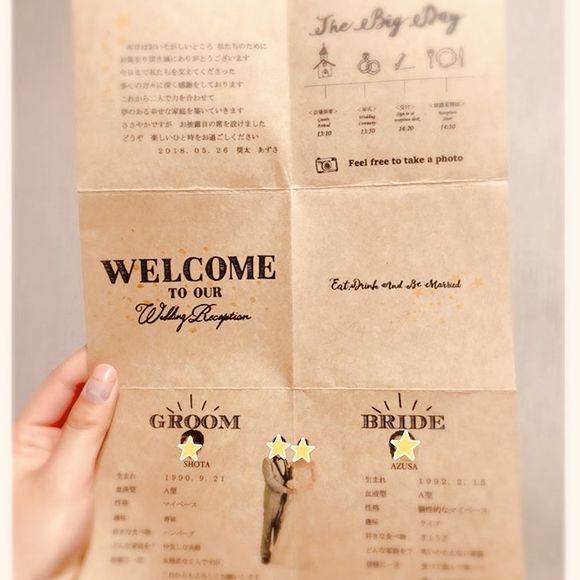 本日はおいそがしいところ 私たちのために
お集まり頂き誠にありがとうございます
今日まで私たちを支えてくださった
多くの方々に深く感謝をしております
これから二人で力を合わせて
夢のある幸せな家庭を築いていきます
ささやかですが お披露目の席を設けました
どうぞ 楽しいひと時をお過ごしください
2018.05.26 奨太 あずさ
The Big Day
Guests
Arrival
13:10
<挙式>
Wedding
Ceremony
13:50
<受付>
Sign in at
reception desk
14:20
<披露宴開始>
Reception
Start
14:50
Feel free to take a photo
WELCOME
TO OUR
Wedding Reception
Eat, Drink And Be Married
GROOM
SHOTA
生まれ 1990.9.21
血液型 A型
性格 マイペース
趣味 野球
好きな食べ物 ハンバーグ
どんな家庭を?
皆様に一言
これからもよろしくお願いします
BRIDE
AZUSA
生まれ 1992.2.15
血液型 A型
性格 個性的なマイペース
趣味 ライブ
好きな食べ物 ぎょうざ
どんな家庭を?
皆様に一言